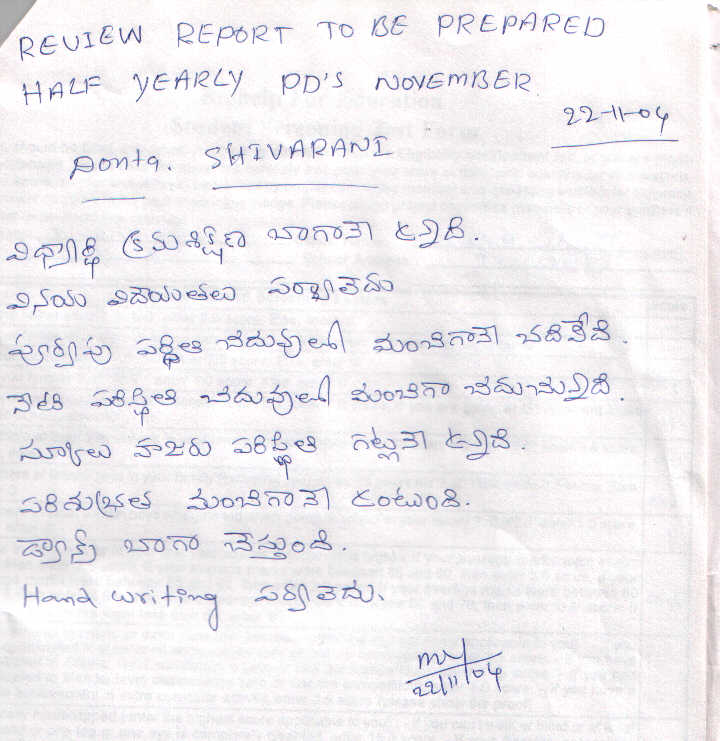 REVIEW REPORT TO BE PREPARED
HALF YEARLY PD'S NOVEMBER
22-11-04
Donta. SHIVARANI
విద్యార్థి క్రమశిక్షణ బాగానే ఉన్నది.
వినయం విదేయతలు పర్వాలేదు
పూర్వపు పర్థితి చదువులో మంచిగానే చదివేది.
నేటి పరిస్థితి చదువులో మంచిగా చదుచున్నది.
స్కూలు హాజరు పరిస్థితి గట్లనే ఉన్నది.
పరిశుభ్రత మంచిగానే ఉంటుంది.
డ్యాన్స్ బాగా చేస్తుంది.
Hand writing పర్వాలేదు.
22/11/04